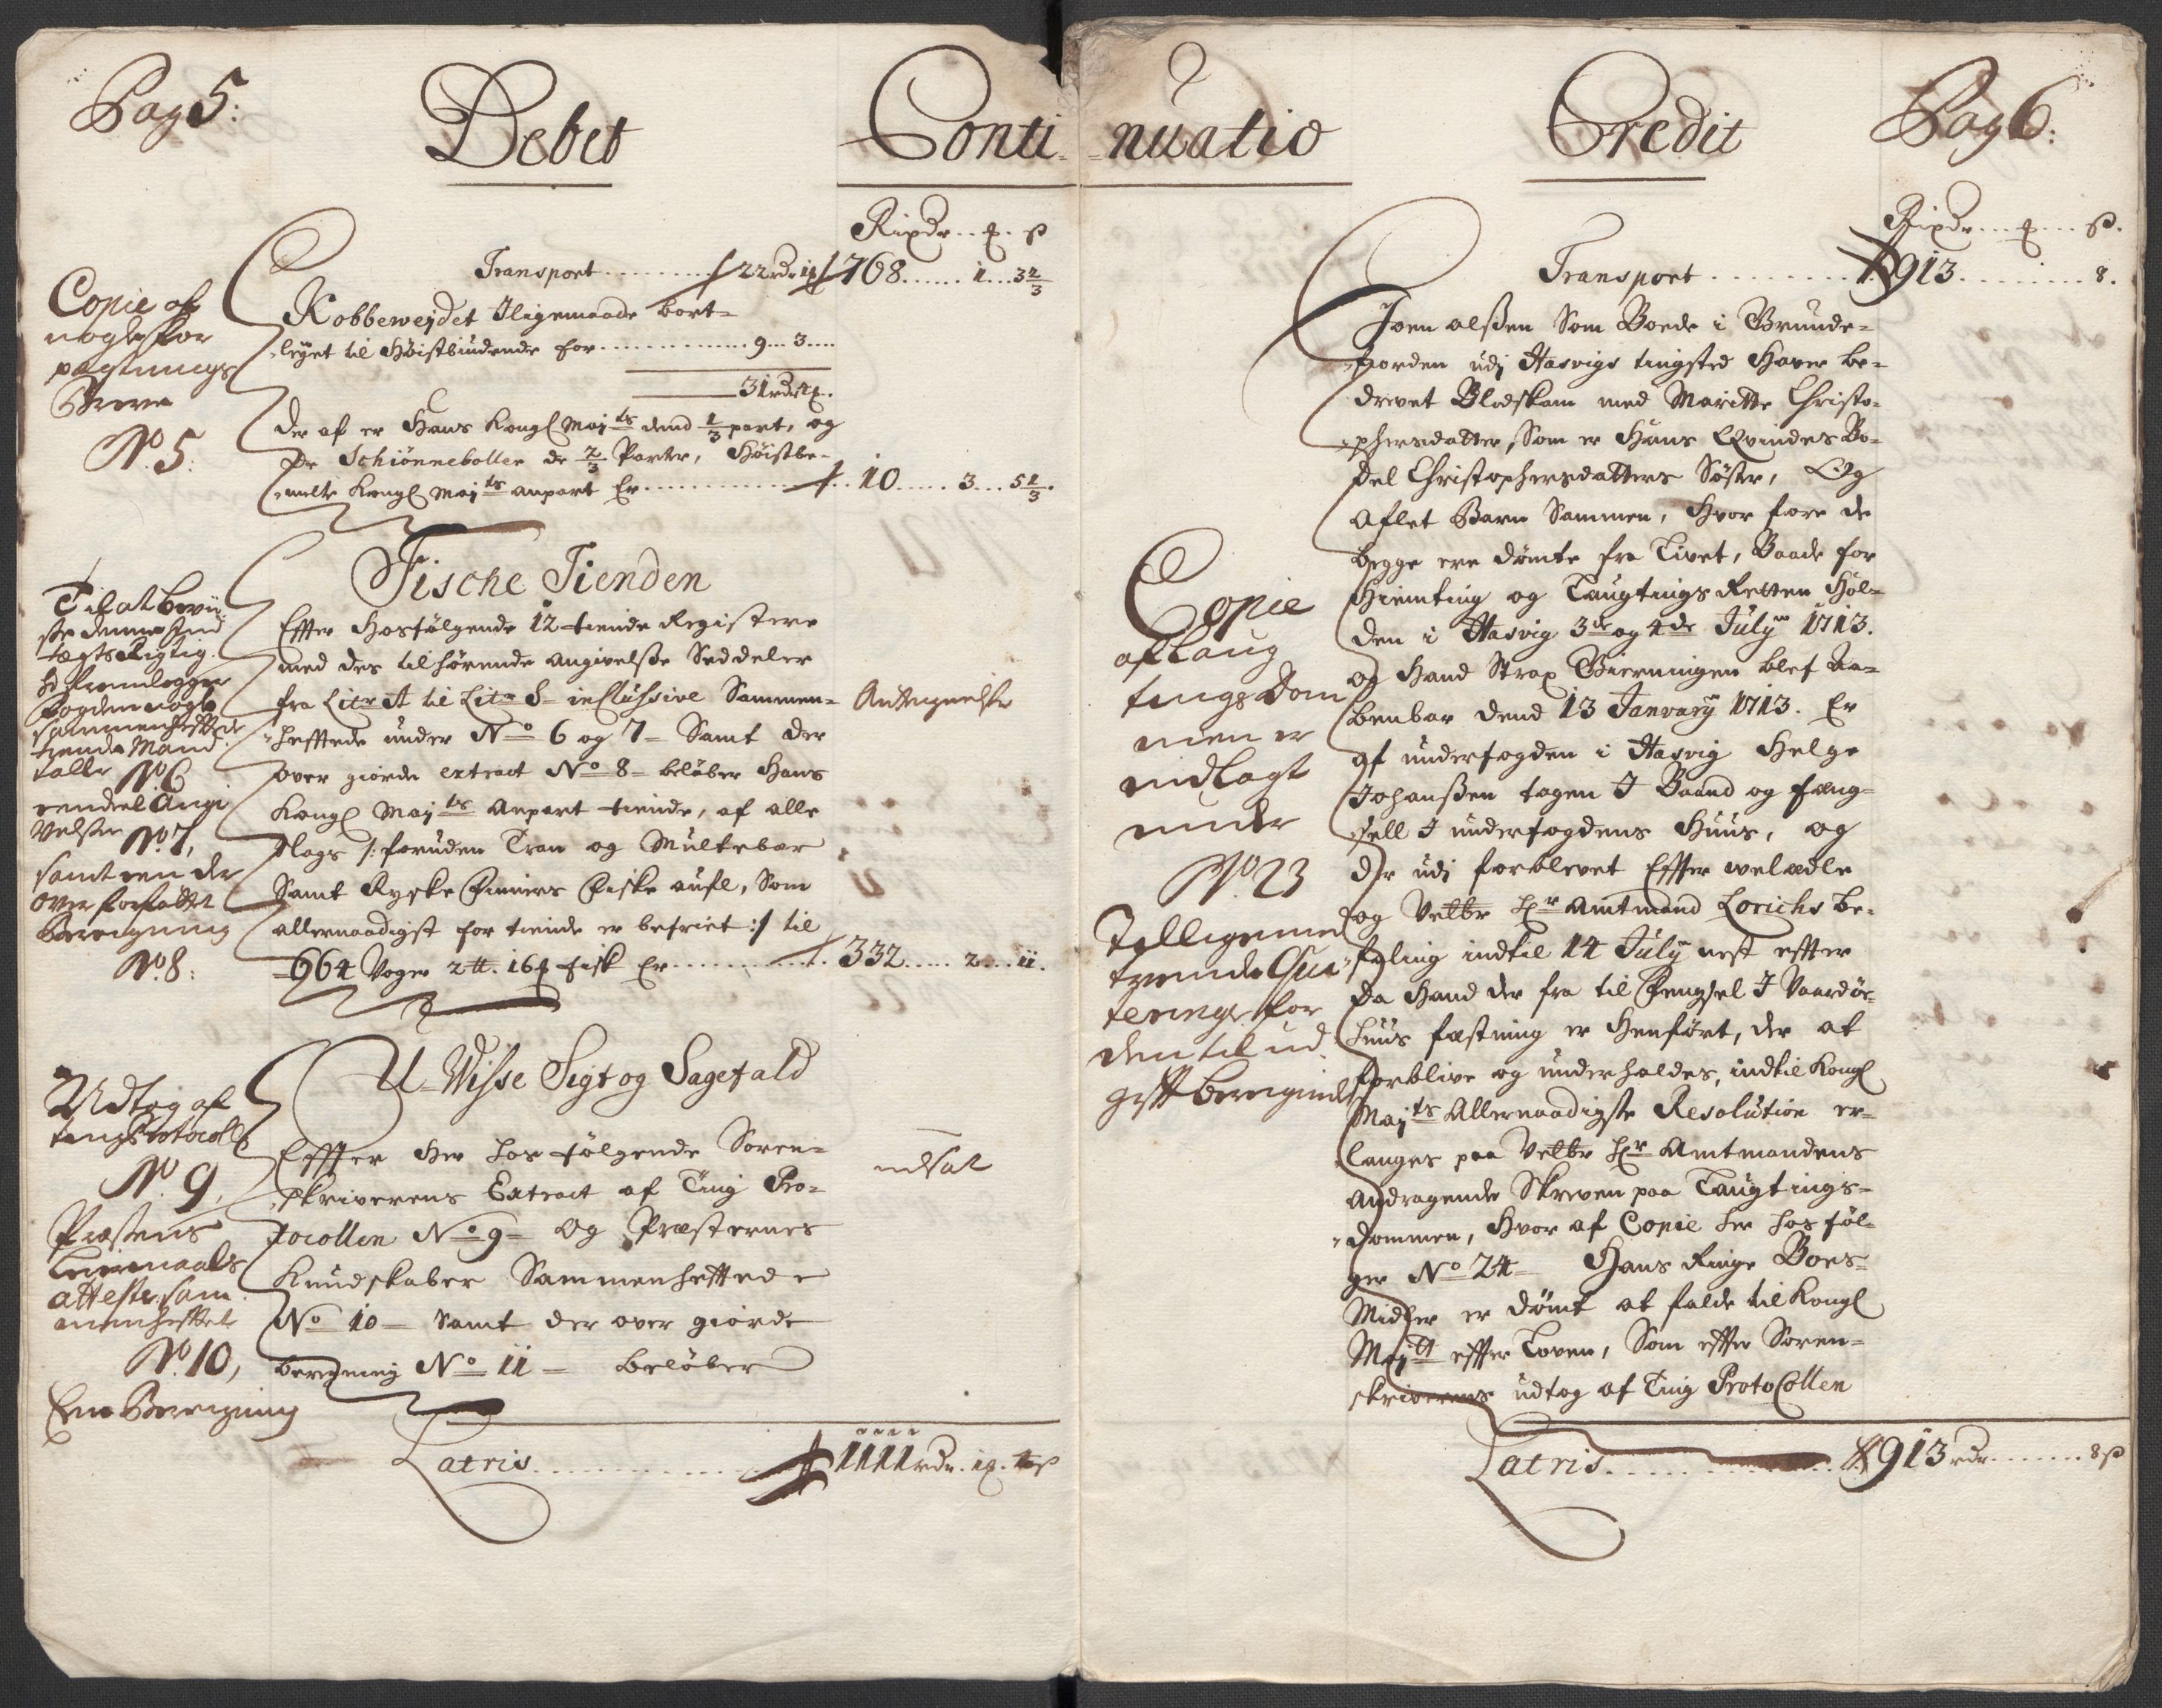 Pag 5:
Debet
Conti-
Rixdr . . ₰ . ß
Transport . . . . . . . . 22rdr 1₰ 768 . . . . . . 1 . . . 3 2/3
Kobbeweydet Iligemaade bort-
leyet til Høistbiudende for . . . . . . . . . 9 . . . 3 . . . .
31rdr 4₰.
Der af er Hans Kongl Mayts dend 1/3 part, og
Hr Schiønnebolle de 2/3 Parter, Høistbe-
melte Kongl Mayts anpart Er . . . . . . . . 10 . . . . . 3 . . . 5 1/3.
Copie af
nogle for
pagtnings
Breve
No. 5:
Fische Tienden
Effter Hosfølgende 12 tiende Registere
med des tilhørende angivelsse Seddeler
fra Litr A til Litr S inclussive Sammen-
heftede under No 6 og 7 Samt der
over giorde extract No 8 beløber Hans
Kongl Mayts Anpart tiende, af alle
slags /: foruden Tran og Multebær
Samt Ryske Finners Fiske aufl, Som
allernaadigst for tiende er befriet :/ til
664 Voger 2 tt. 16 ₰ fisk Er . . . . . . . . 332 . . . . . 2 . . . 11.
Til at bevii-
se denne Ind
tægts Rigtig
hed fremlegger
Fogden nogle
sammenheftede
tiende Mand
taller No. 6
en deel Angi
velsser No. 7,
samt een der
over forfattet
Beregning
No. 8:
Antegnelse
U-Wisse Sigt og Sagefald
Effter Her hos følgende Soren-
skriverens Extract af Ting Pro-
tocollen No 9 Og Præsternes
Kundskaber Sammenhefftede
No 10 Samt der over giorde
beregning No 11 Beløber
Udtog af
tingProtocoll
No. 9,
Præstens
Leiermaals
atteste sam
menhefftet
No. 10,
Een Beregning
udsat
Latris . . . . . . . . . . . . 1111rdr. 1₰. 4ß
nuatio
Credit
Pag 6:
Rixdr . . . ₰ . . . ß.
Transport . . . . . . . . 913 . . . . . . . . . 8.
Joen olssen Som Boede i Brunde-
fiorden udj Hasvigs tingsted Haver be-
drevet Blodskam med Maritte Christo-
phersdatter, Som er Hans Qvindes Bo-
del Christophersdatters Søster, Og
Aflet Barn Sammen, Hvor fore de
begge ere dømte fra Livet, Baade for
Hiemting og Laugtings Retten Hol-
den i Hasvig 3de og 4de July 1713.
og Hand Strax Gierningen blef Aa-
benbar dend 13 January 1713. Er
af underfogden i Hasvig Helge
Johanssen tagen I Baand og fæng-
sell I underfogdens Huus, og
der udj forblevet Effter welædle
og Velbr Hr Amtmand Lorichs be-
faling indtil 14 July nest effter
da Hand der fra til Fengsel I Vaardøe-
huus festning er Henført, der at
forblive og underholdes, indtil Kongl
Mayts Allernaadigste Resolution er-
langes paa Velbr Hr Amtmandens
Andragende Skriven paa Laugtings-
dommen, Hvor af Copie her hos føl-
ger No 24 Hans Ringe Boes-
Midler er dømt at falde til Kongl
Maytt effter Loven, Som effter Soren-
skriverens udtog af Ting Protocollen
Copie
af Laug
tings Dom
men er
indlagt
under
No. 23
Iligemed
trende Qvi-
teringer for
den til ud
gifft beregnede
Latris . . . . . . . . . . . . 913rdr . . . . . . . 8ß